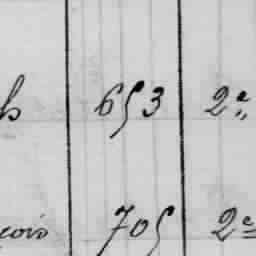 653 2e
çois 705 2e